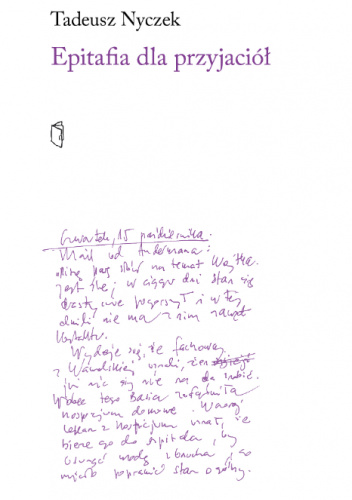 Tadeusz Nyczek
Epitafia dla przyjaciół
Czwartek, 15 października.
Mail od
parę słów na temat Wojtka.
Jest źle; w ciągu dni stan się
drastycznie pogorszył i w tej
chwili nie ma z nim nawet
kontaktu.
Wydaje się, że fachowcy
z Wawelskiej uznali, że
już nic się nie da zrobić.
Wobec tego Basia załatwiła
hospicjum domowe. Wczoraj
lekarz z hospicjum uznał, że
bierze go do szpitala, by
usunąć wodę z brzucha i go
poprawić stan ogólny.